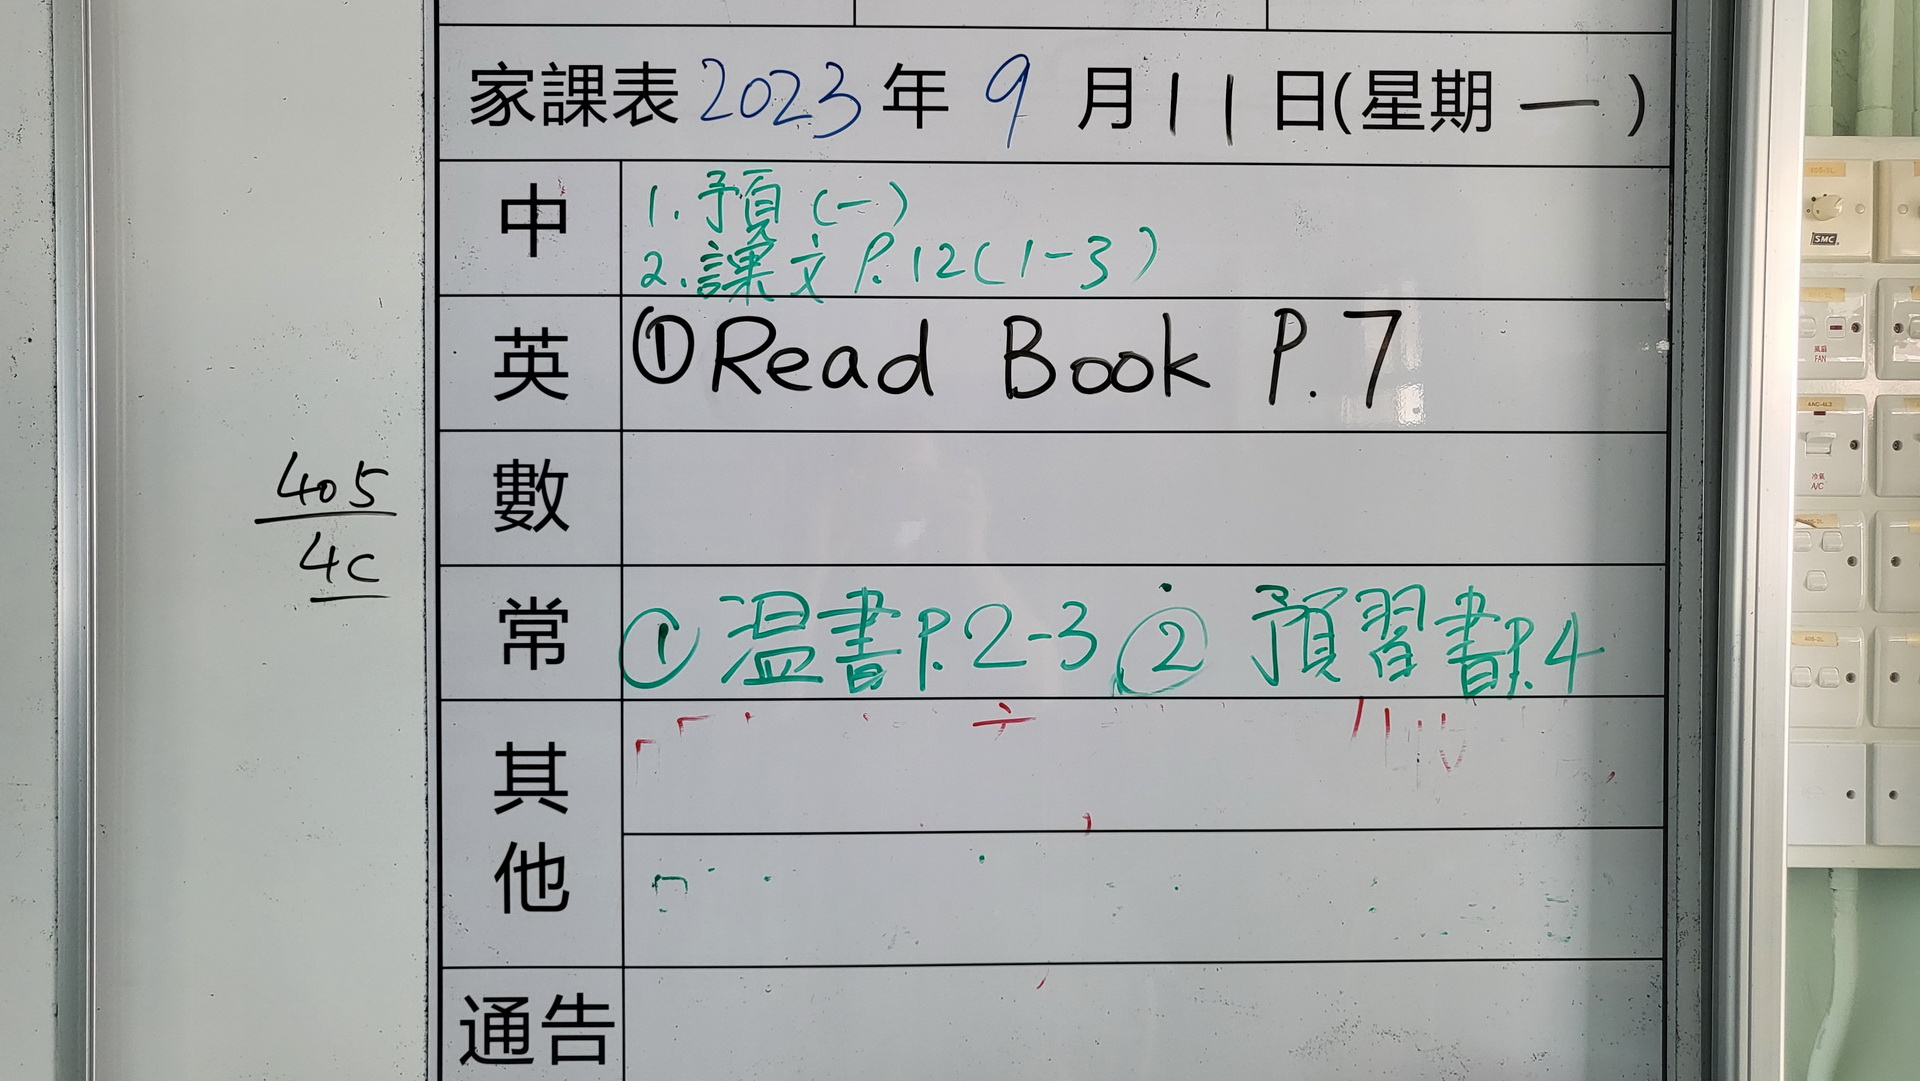 家課表 2023 年 9 月 11 日(星期 一 )
中
1. 預 (一)
2. 課文 P.12(1-3)
英
① Read Book P.7
數
405
4C
常
① 温書 P.2-3 ② 預習書 P.4
其他
通告
SMC
風扇
FAN
冷氣
A/C